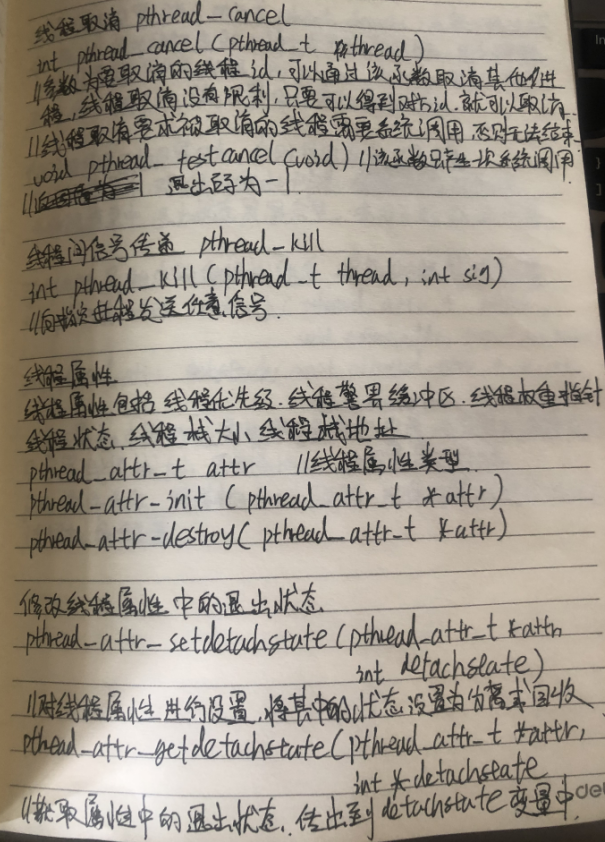 线程取消 pthread_cancel
int pthread_cancel (pthread_t thread)
//参数为要取消的线程id,可以通过该函数取消其他线
程,线程取消没有限制,只要可以得到对方id.就可以取消
//线程取消要求被取消的线程需要系统调用 否则无法结束
void pthread_testcancel (void) //该函数只产生一次系统调用
// 退出码为-1
线程间信号传递 pthread_kill
int pthread_kill (pthread_t thread, int sig)
//向 线程发送任意信号.
线程属性
线程属性包括 线程优先级.线程警界缓冲区.线程权重指针
线程状态.线程栈大小.线程栈地址
pthread_attr_t attr //线程属性类型
pthread_attr_init (pthread_attr_t *attr)
pthread_attr_destroy( pthread_attr_t *attr)
修改线程属性中的退出状态
pthread_attr_setdetachstate (pthread_attr_t *attr,
int detachseate)
//对线程属性进行设置,将其中的状态设置为分离或回收
pthread_attr_getdetachstate (pthread_attr_t *attr,
int *detachseate
//获取属性中的退出状态.传出到detachstate变量中